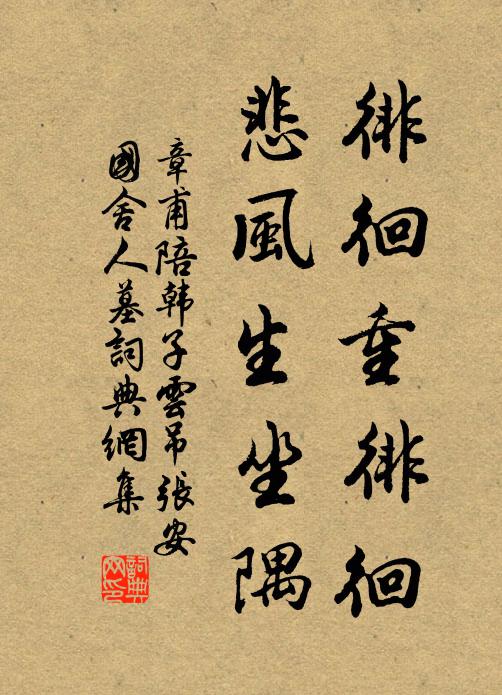 徘徊重徘徊
悲風生坐隅
章甫陪韩子雲吊張安
國舍人墓詞典網集
詞典
网印